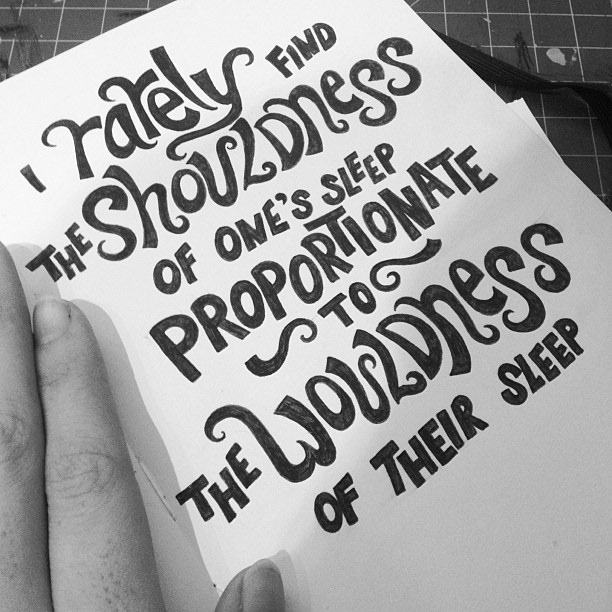 I rarely FIND
THE ShoulDness
OF ONE'S SLEEP
PROPORTIONATE
TO
THE WoulDness
OF THEIR SLEEP